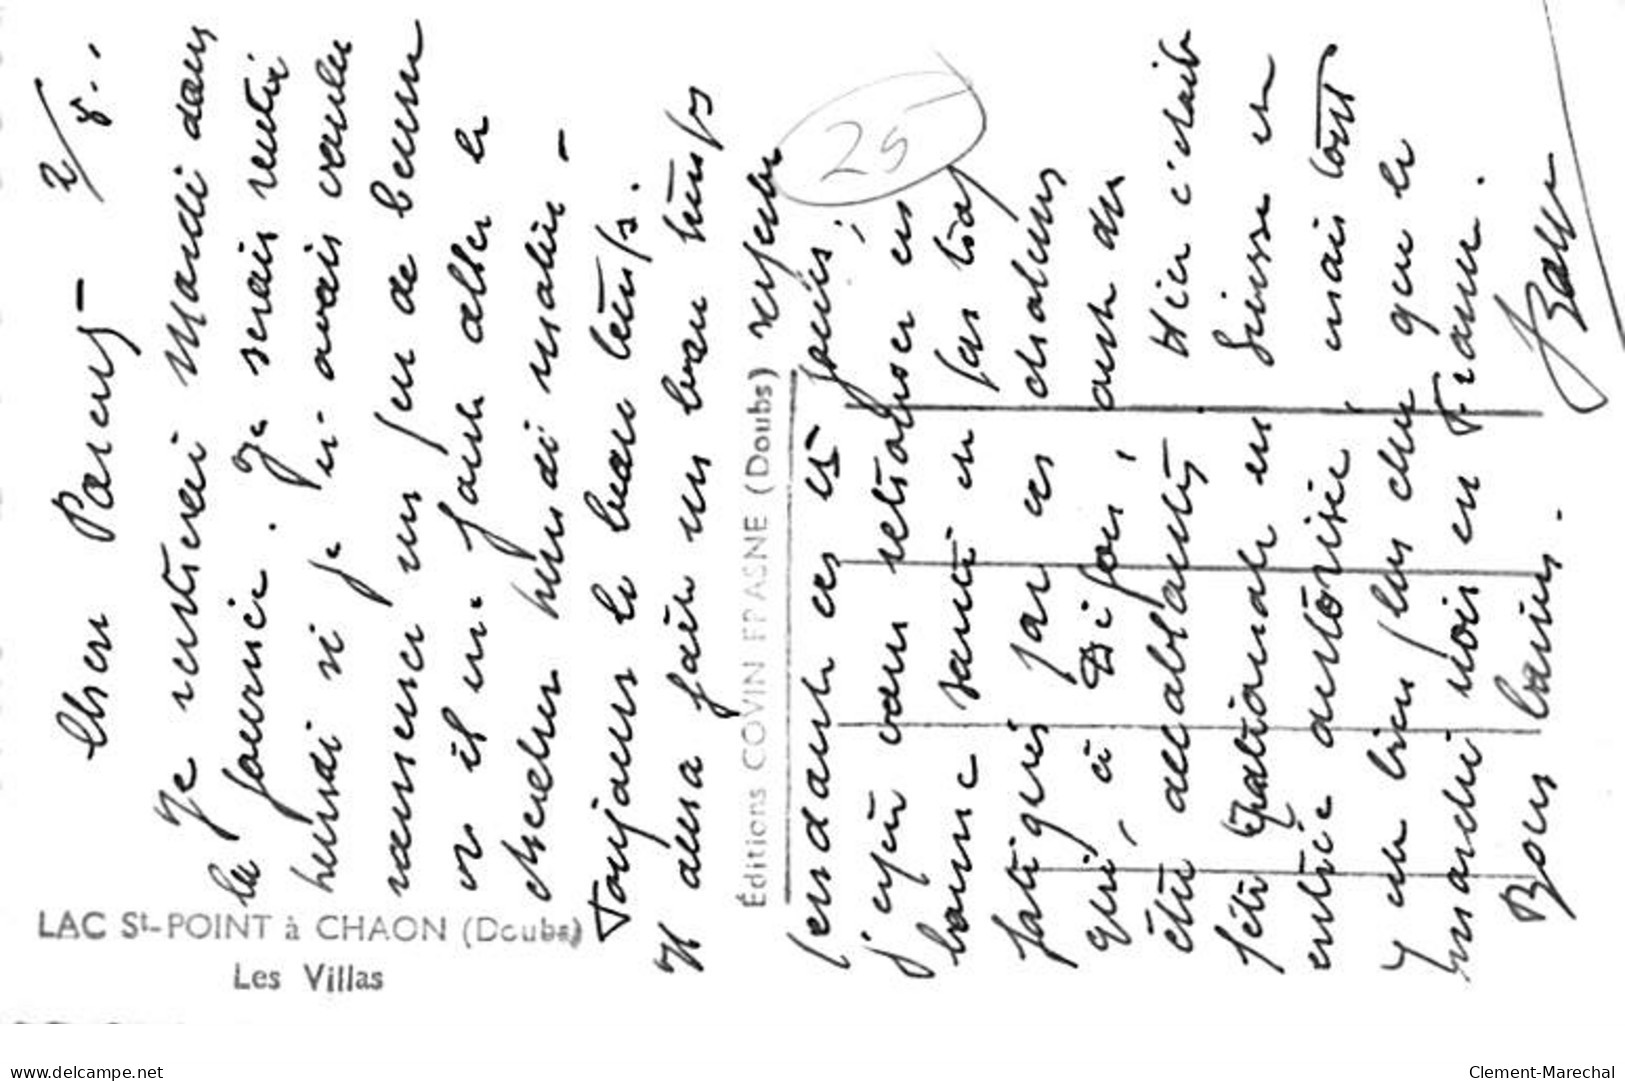 2/8..
Chers Parents -
Je rentrerai Mardi dans
la journée. Je serais rentré
lundi si je n'avais voulu
ramener un peu de beurre
et il me faut aller le
chercher lundi matin -
Toujours le beau temps.
Il aura fait un beau temps
pendant ces 15 jours ;
j'espère vous retrouver en
bonne santé et pas trop
fatigués par ces chaleurs
qui, à Dijon, ont dû
être accablantes. Hier c'était
fête Nationale en Suisse et
entrée autorisée, mais tout
y est bien plus cher que le
marché noir en France.
Bons baisers.
LAC St-POINT à CHAON (Doubs)
Les Villas
Éditions COVIN FRASNE (Doubs)
25
www.delcampe.net
Clement-Marechal